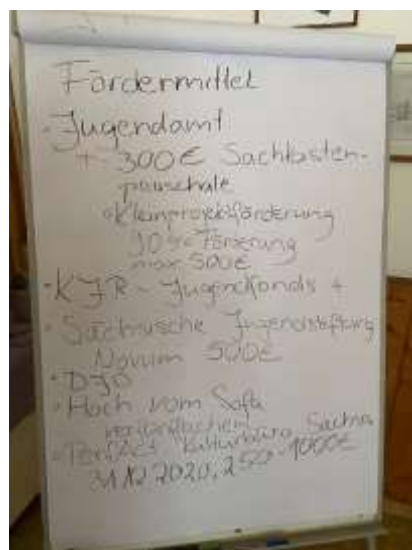 Fördermittel
- Jugendamt
+ 300€ Sachkosten-
pauschale
• Kleinprojektförderung
90% Förderung
max. 500€
• KJR - Jugendfonds +
• Sächsische Jugendstiftung
Novum 500€
• DJO
• Hoch vom Sofa
• Kulturbüro Sachsen
31.12.2020, 250-1000€